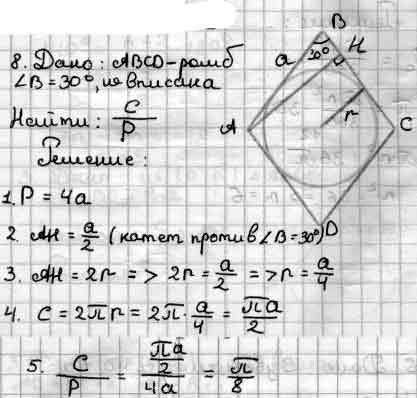 8. Дано: ABCD - ромб
∠B = 30°, ω вписана
Найти: C/P
Решение:
1. P = 4a
2. AH = a/2 (катет против ∠B = 30°)
3. AH = 2r => 2r = a/2 => r = a/4
4. C = 2πr = 2π · a/4 = πa/2
5. C/P = (πa/2)/4a = π/8
B
H
a
30°
r
A
C
D